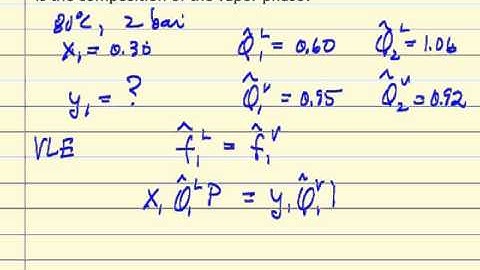 is the composition of the vapor phase?
80°C, 2 bar
x₁ = 0.30 φ̂₁ᴸ = 0.60 φ̂₂ᴸ = 1.06
y₁ = ? φ̂₁ⱽ = 0.95 φ̂₂ⱽ = 0.92
VLE f̂₁ᴸ = f̂₁ⱽ
x₁ φ̂₁ᴸ P = y₁ φ̂₁ⱽ